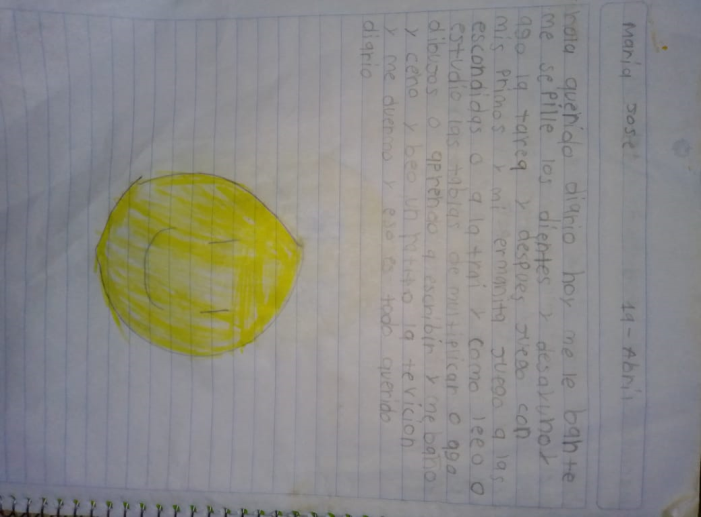 Maria José 19-Abril
hola querido diario hoy me le bante
me sepille los dientes y desayuney
ago la tarea y despues juego con
mis primos y mi ermanita juego a las
escondidas o a la trai y como leeo o
estudio las tablas de multiplicar o ago
dibujos o aprendo a escribir y me baño
y ceno y beo un ratito la tevicion
y me duermo y eso es todo querido
diario